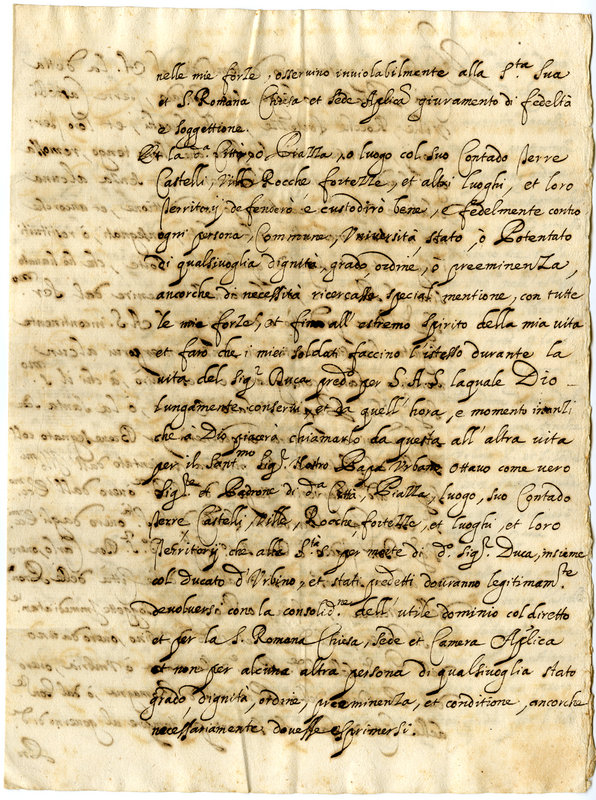 nelle mie forze, osservino inviolabilmente alla S.ta Sua
et S. Romana Chiesa et Sede Aplica giuramento di fedeltà
e soggettione.
Et la d.a Città, ò Piazza, o luogo col suo Contado Terre
Castelli, Ville Rocche fortezze, et altri luoghi, et loro
Territorij defenderò e custodirò bene, e fedelmente contro
ogni persona, Commune, Università, stato, ò Potentato
di qualsivoglia dignità, grado, ordine, ò preeminenza,
ancorche di necessità ricercasse special mentione, con tutte
le mie forze, et fino all' estremo spirito della mia vita
et farò che i miei soldati faccino l'istesso durante la
vita del Sig.r Duca pred.o per S. A. S. laquale Dio
lungamente conservi, et da quell' hora, e momento inanzi
che à Dio piacerà chiamarlo da questa all' altra vita
per il Sant.mo Sig.r Nostro Papa Urbano ottavo come vero
Sig.re et Padrone di d.a Città, Piazza, luogo, suo Contado
Terre Castelli, Ville, Rocche, fortezze, et luoghi, et loro
Territorij che alla S.tà S. per morte di d.o Sig.r Duca, insieme
col Ducato d'Urbino, et stati predetti dovranno legitimam.te
devolversi con la consolid.ne dell' utile dominio col diretto
et per la S. Romana Chiesa, Sede et Camera Aplica
et non per alcuna altra persona di qualsivoglia stato
grado, dignità, ordine, preeminenza, et conditione, ancorche
necessariamente dovesse esprimersi.